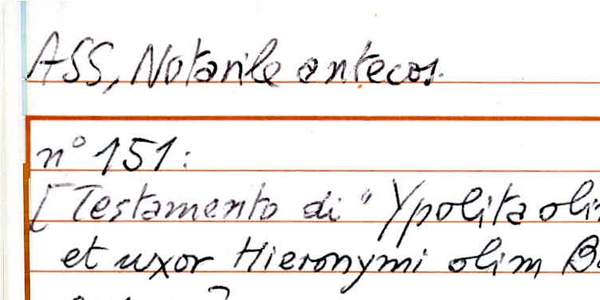 ASS, Notarile antecos.
n° 151:
[Testamento di "Ypolita
et uxor Hieronymi olim